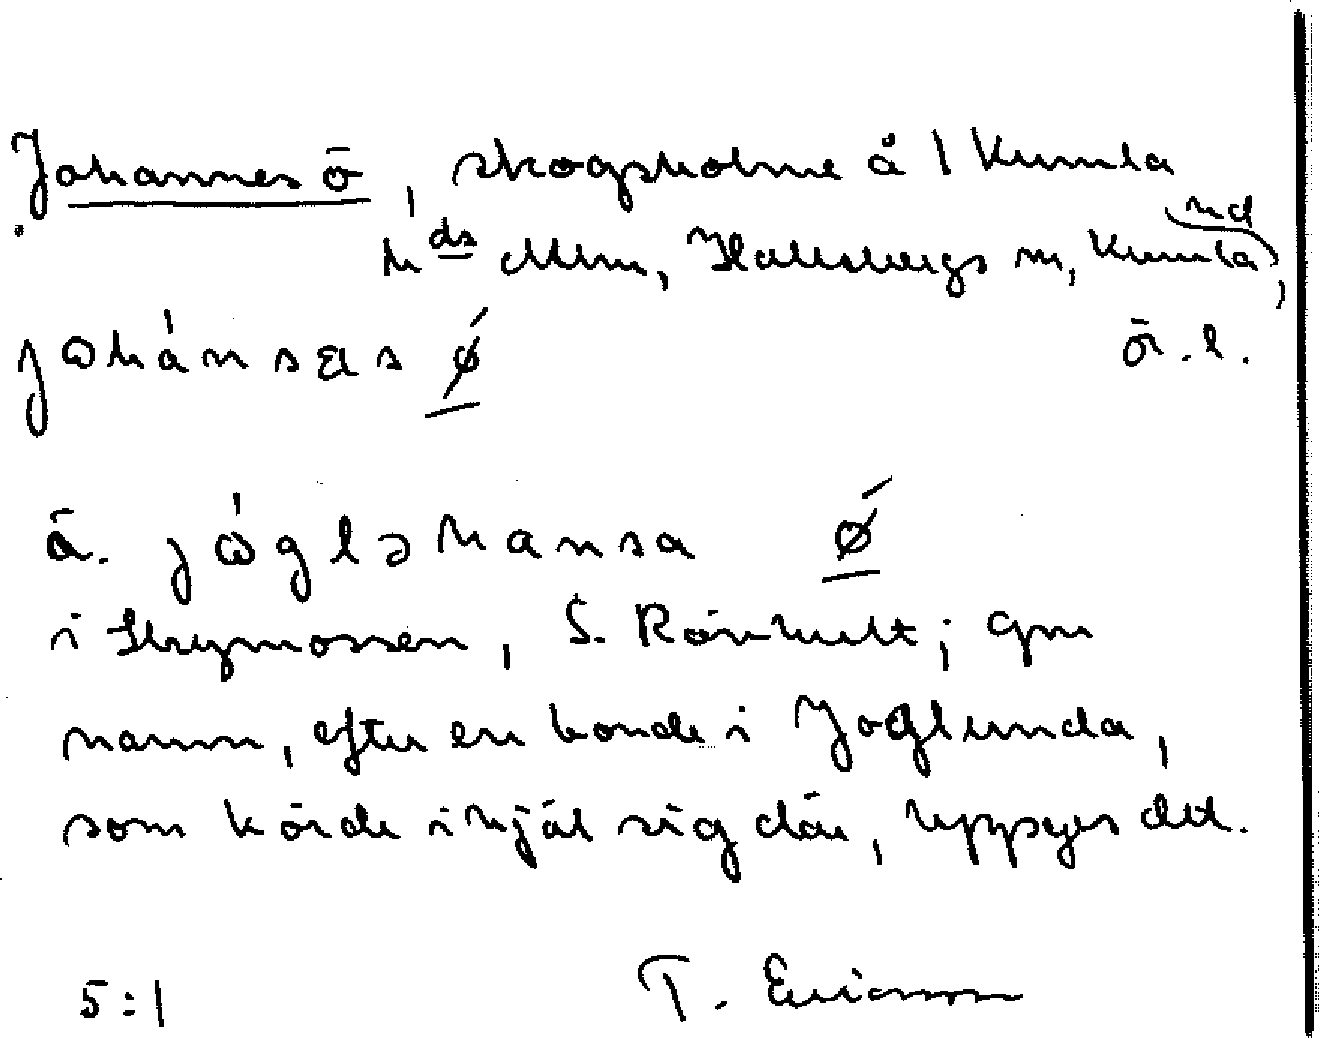 Johannes ö, skogsholme å 1 Kumla
hds Allm, Hallsbergs sn, Kumla hd,
ö. l.
johánsəs ǿ
ä. jógləhansa ǿ
i Skrymossen, S. Rönhult; gm
namn, efter en bonde i Joglunda,
som körde ihjäl sig där, uppges det.
5:1 T. Ericsson